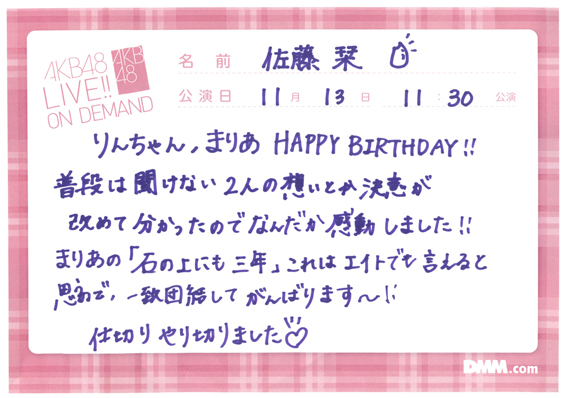 AKB48
LIVE!!
ON DEMAND
AKB
48
名前 佐藤 栞
公演日 11月 13日 11:30 公演
りんちゃん、まりあ HAPPY BIRTHDAY!!
普段は聞けない2人の想いとか決意が
改めて分かったのでなんだか感動しました!!
まりあの「石の上にも三年」これはエイトでも言えると
思うので、一致団結してがんばります〜!!
仕切りやり切りました♡
DMM.com